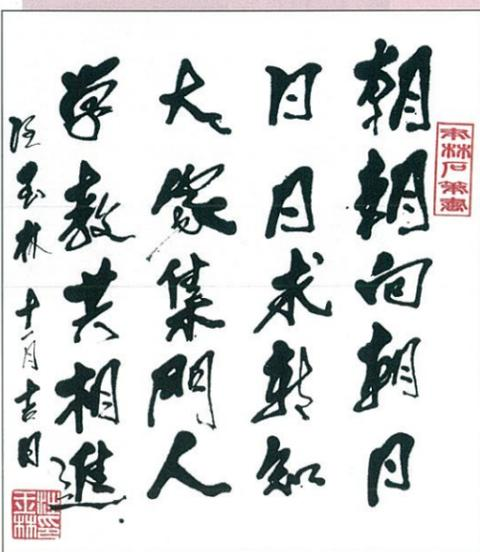 朝朝向朝日
日日求新知
大家集門人
学教共相進
汪玉林 十一月吉日
汪玉林印